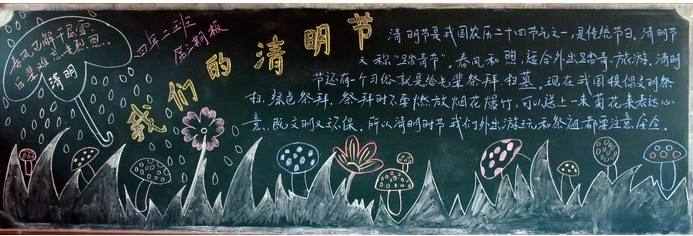 清明
四年二班
第三期板
我们的清明节
清明节是我国农历二十四节气之一,是传统节日,清明节
又称"踏青节",春风和照,适合外出踏青、旅游,清明
节还有一个习俗就是给先辈祭拜扫墓。现在我国提倡文明祭
扫,绿色祭拜,祭拜时不要燃放烟花爆竹,可以送上一束菊花来表达心
意,既文明又环保。所以清明时节我们外出游玩和祭祖都要注意